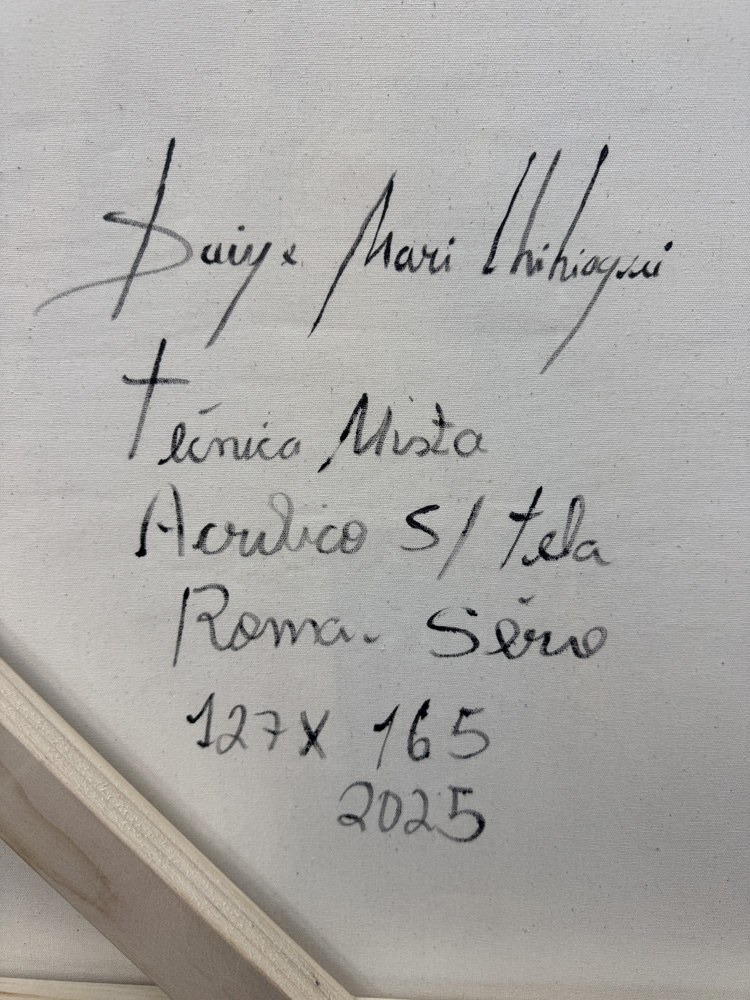 Daiye Mari
Técnica Mista
Acrílico S/ tela
Roma. Série
127 X 165
2025